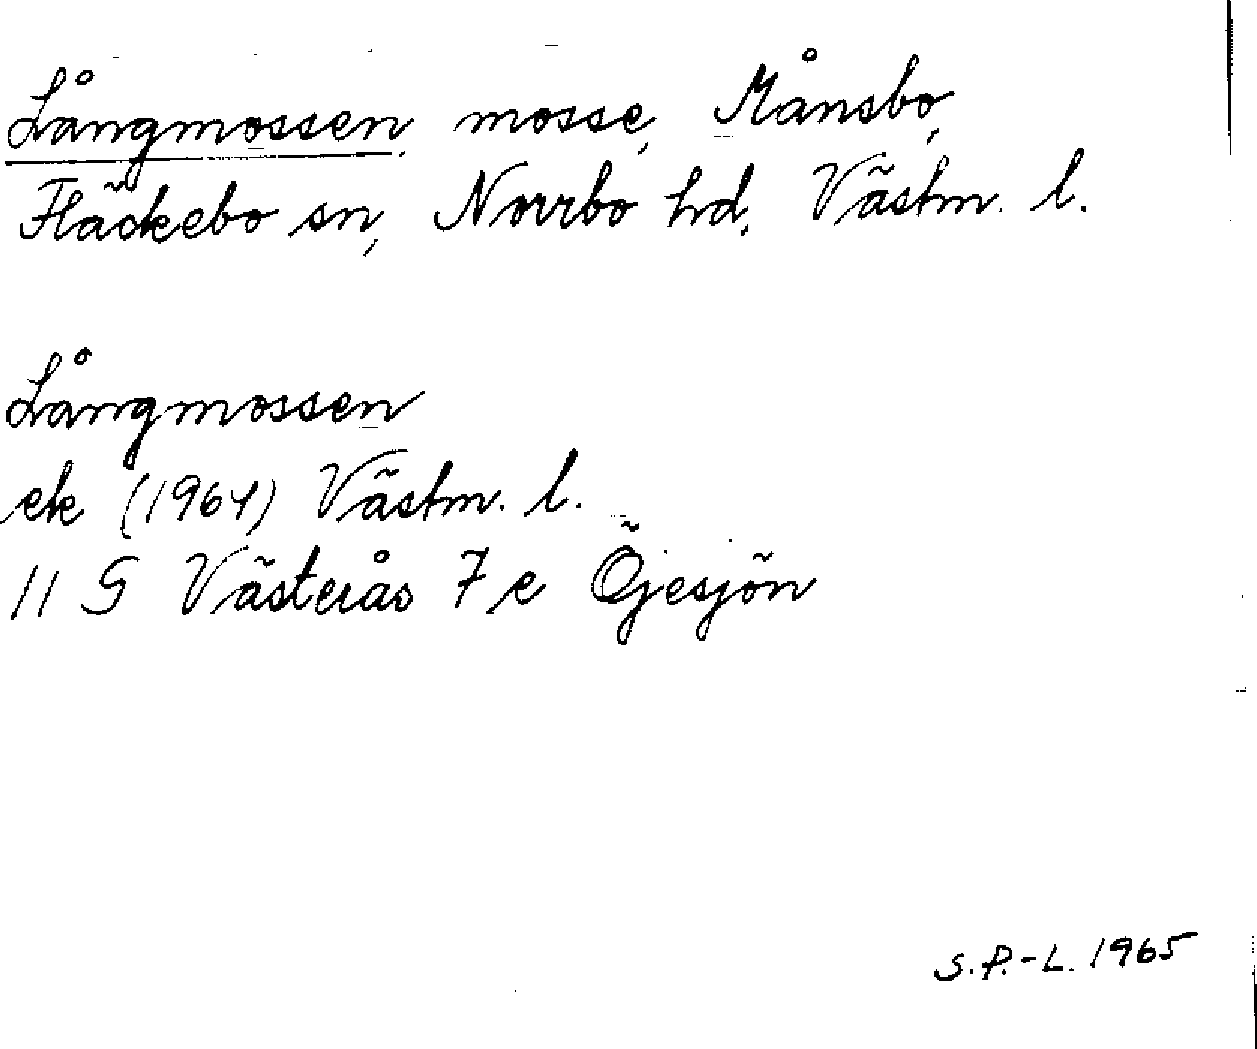 Långmossen, mosse, Månsbo,
Fläckebo sn, Norrbo hd, Västm. l.
Långmossen
ek (1964) Västm. l.
11 G Västerås 7 e Öjesjön
S.P.-L. 1965